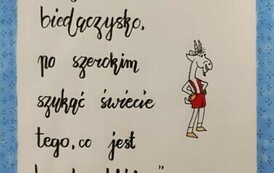 biedaczysko,
po szerokim
szukać świecie
tego, co jest